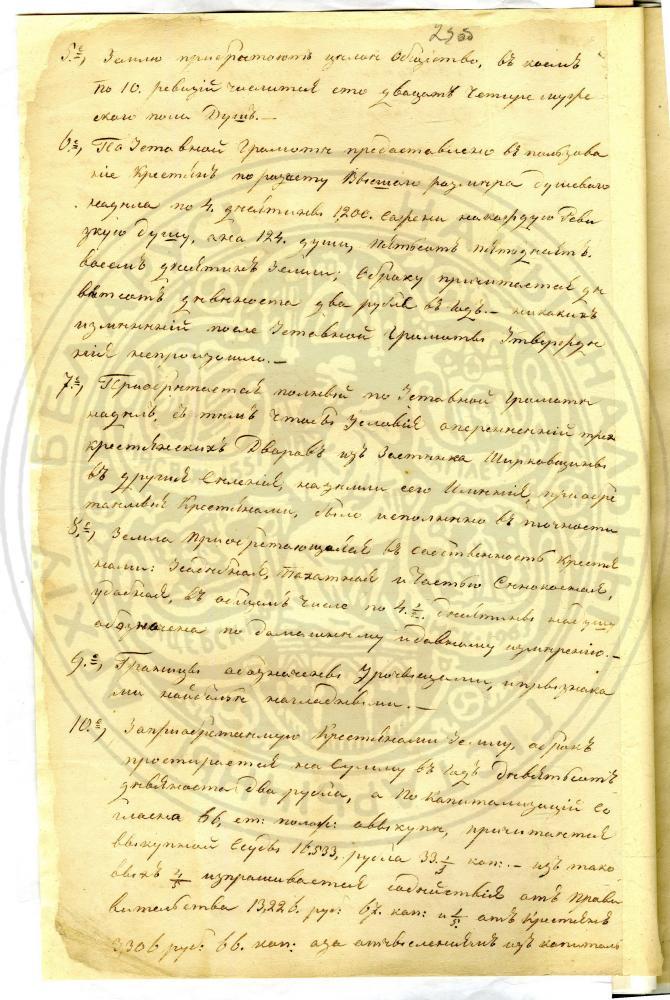 255
5.е, Землю приобретаютъ целое Общество, въ коемъ
по 10. ревизiй числится сто двацать Четире муже
ского пола Душъ.—
6.е, По Уставной Грамоты предоставлено въ пользова
нiе Крестянъ по разсету Высшаго размѣра душевого
надѣла по 4. дѣсятины 1,200. сажени на каждую Реви
зкую душу, а на 124. души, пятьсотъ пятдѣсятъ.
восемъ дѣсятинъ Земли; Оброку причитается дѣ
вятсотъ дѣвяноста два рубля въ Годъ.— никакихъ
измѣненiй после Уставной Грамоты Утвержде
нiя непроизошло.—
7.е, Прiобрѣтается полный по Уставной Грамоты
надѣлъ, съ тѣмъ чтобы Условiя о перенесенiй трех
крестянскихъ Дворовъ изъ Застѣнка Ширковщины
въ другiя Селенiя, на земли его Имѣнiя, прiобре
таемыя Крестянами, было исполнено въ точности
8.е, Земля прiобретающаяся въ собственность Крестя
нами: Усадебная, Пахатная и Частью Сенокосная,
удобная, въ общемъ числе по 4 1/2 дѣсятины на душу
обозначена по домашному издавному измѣренiю.—
9.е, Границы обозначены Урочищами, и признака
ми найболѣе наглядными.—
10.е, За прiобретаемую Крестянами Землю, оброкъ
простирается на Сумму въ Годъ Дѣвятьсотъ
дѣвяноста два рубля, а По Капитализацiй Со
гласна 66, ст: полож: о выкупѣ, причитается
выкупной Ссуды 16.533, рубля 33 1/3 коп:— изъ тако
выхъ 4/5 испрашивается содѣйствiя отъ Прави
вительства 13,226. руб: 67. коп: и 1/5. отъ Крестянъ
3,306 руб: 66. коп: а за отчисленiемъ изъ капиталь